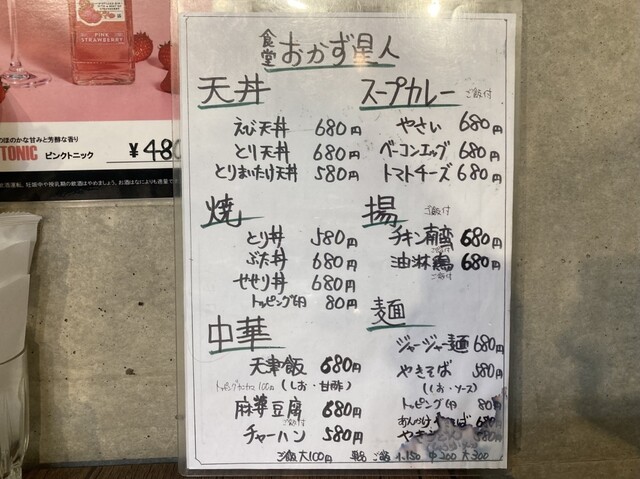 PINK
STRAWBERRY
のほのかな甘みと芳醇な香り
TONIC ピンクトニック ¥480
食堂 おかず星人
天丼
えび天丼 680円
とり天丼 680円
とりまいたけ天丼 580円
焼
とり丼 580円
ぶた丼 680円
せせり丼 680円
トッピング卵 80円
中華
天津飯 680円
100円 (しお・甘酢)
麻婆豆腐 680円
ご飯付
チャーハン 580円
スープカレー ご飯付
やさい 680円
ベーコンエッグ 680円
トマトチーズ 680円
揚 ご飯付
チキン南蛮 680円
ご飯付
油淋鶏 680円
ご飯付
麺
ジャージャー麺 680円
やきそば 580円
(しお・ソース)
トッピング卵 80円
あんかけやきそば 680円
580円
ご飯大100円 単品 ご飯 小150 中200 大300